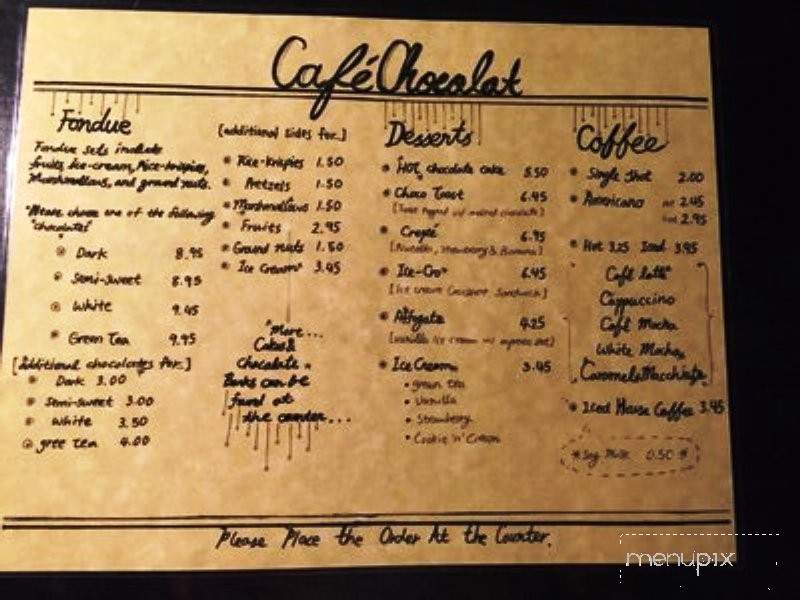 Café Chocolat
Fondue
Fondue sets include
fruits, ice-cream, Rice-krispies,
Marshmallows, and ground nuts.
*Please choose one of the following
"chocolates"
Dark 8.95
Semi-Sweet 8.95
White 9.45
Green Tea 9.95
[Additional chocolates for..]
Dark 3.00
Semi-sweet 3.00
White 3.50
gree tea 4.00
[additional sides for..]
Rice-Krispies 1.50
Pretzels 1.50
Marshmallows 1.50
Fruits 2.95
Ground nuts 1.50
Ice Cream* 3.45
"More...
Cakes &
Chocolate
Barks can be
found at
the counter...
Desserts
Hot chocolate cake 8.50
Choco Toast 6.45
Crepe 6.95
[Nutella, Strawberry & Banana]
Ice-Cro* 6.45
[Ice cream Croissant Sandwich]
Affogato 4.25
[vanilla ice cream w/ espresso shot]
Ice Cream 3.45
• green tea
• Vanilla
• Strawberry
• Cookie 'n' Cream
Coffee
Single Shot 2.00
Americano hot 2.45
iced 2.95
Hot 3.25 Iced 3.95
Café latte
Cappuccino
Café Mocha
White Mocha
Caramel Macchiato
Iced House Coffee 3.45
*Soy Milk 0.50 $
Please Place the Order At the Counter.
menupix